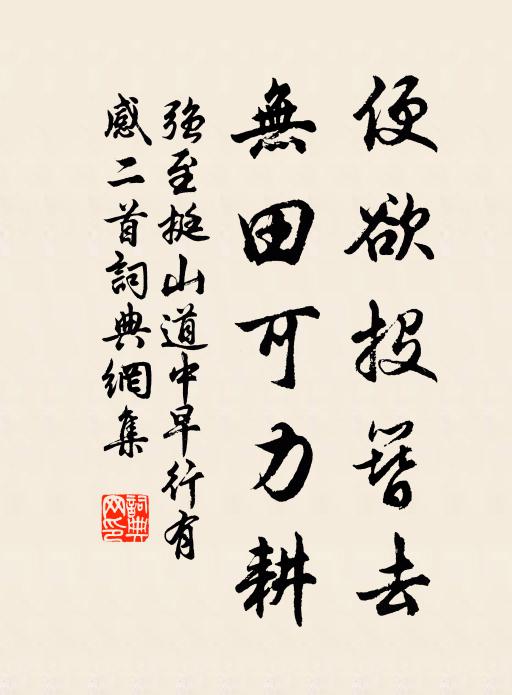 便欲投簪去
無田可力耕
強至挺山道中早行有
感二首詞典網集
詞典
网印